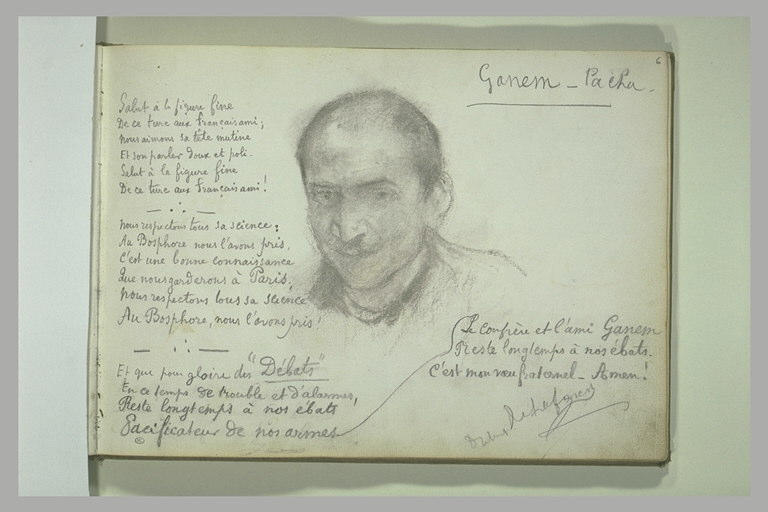 6
Ganem - Pacha.
Salut à la figure fine
De ce turc aux français ami;
Nous aimons sa tête mutine
Et son parler doux et poli.
Salut à la figure fine
De ce turc aux français ami!
Nous respectons tous sa science;
Au Bosphore nous l'avons pris,
C'est une bonne connaissance
Que nous garderons à Paris.
Nous respectons tous sa science
Au Bosphore, nous l'avons pris!
Et que pour gloire des "Débats"
En ce temps de trouble et d'alarmes,
Reste longtemps à nos ébats
Pacificateur de nos armes
Le confrère et l'ami Ganem
Reste longtemps à nos ébats.
C'est mon vœu fraternel - Amen!